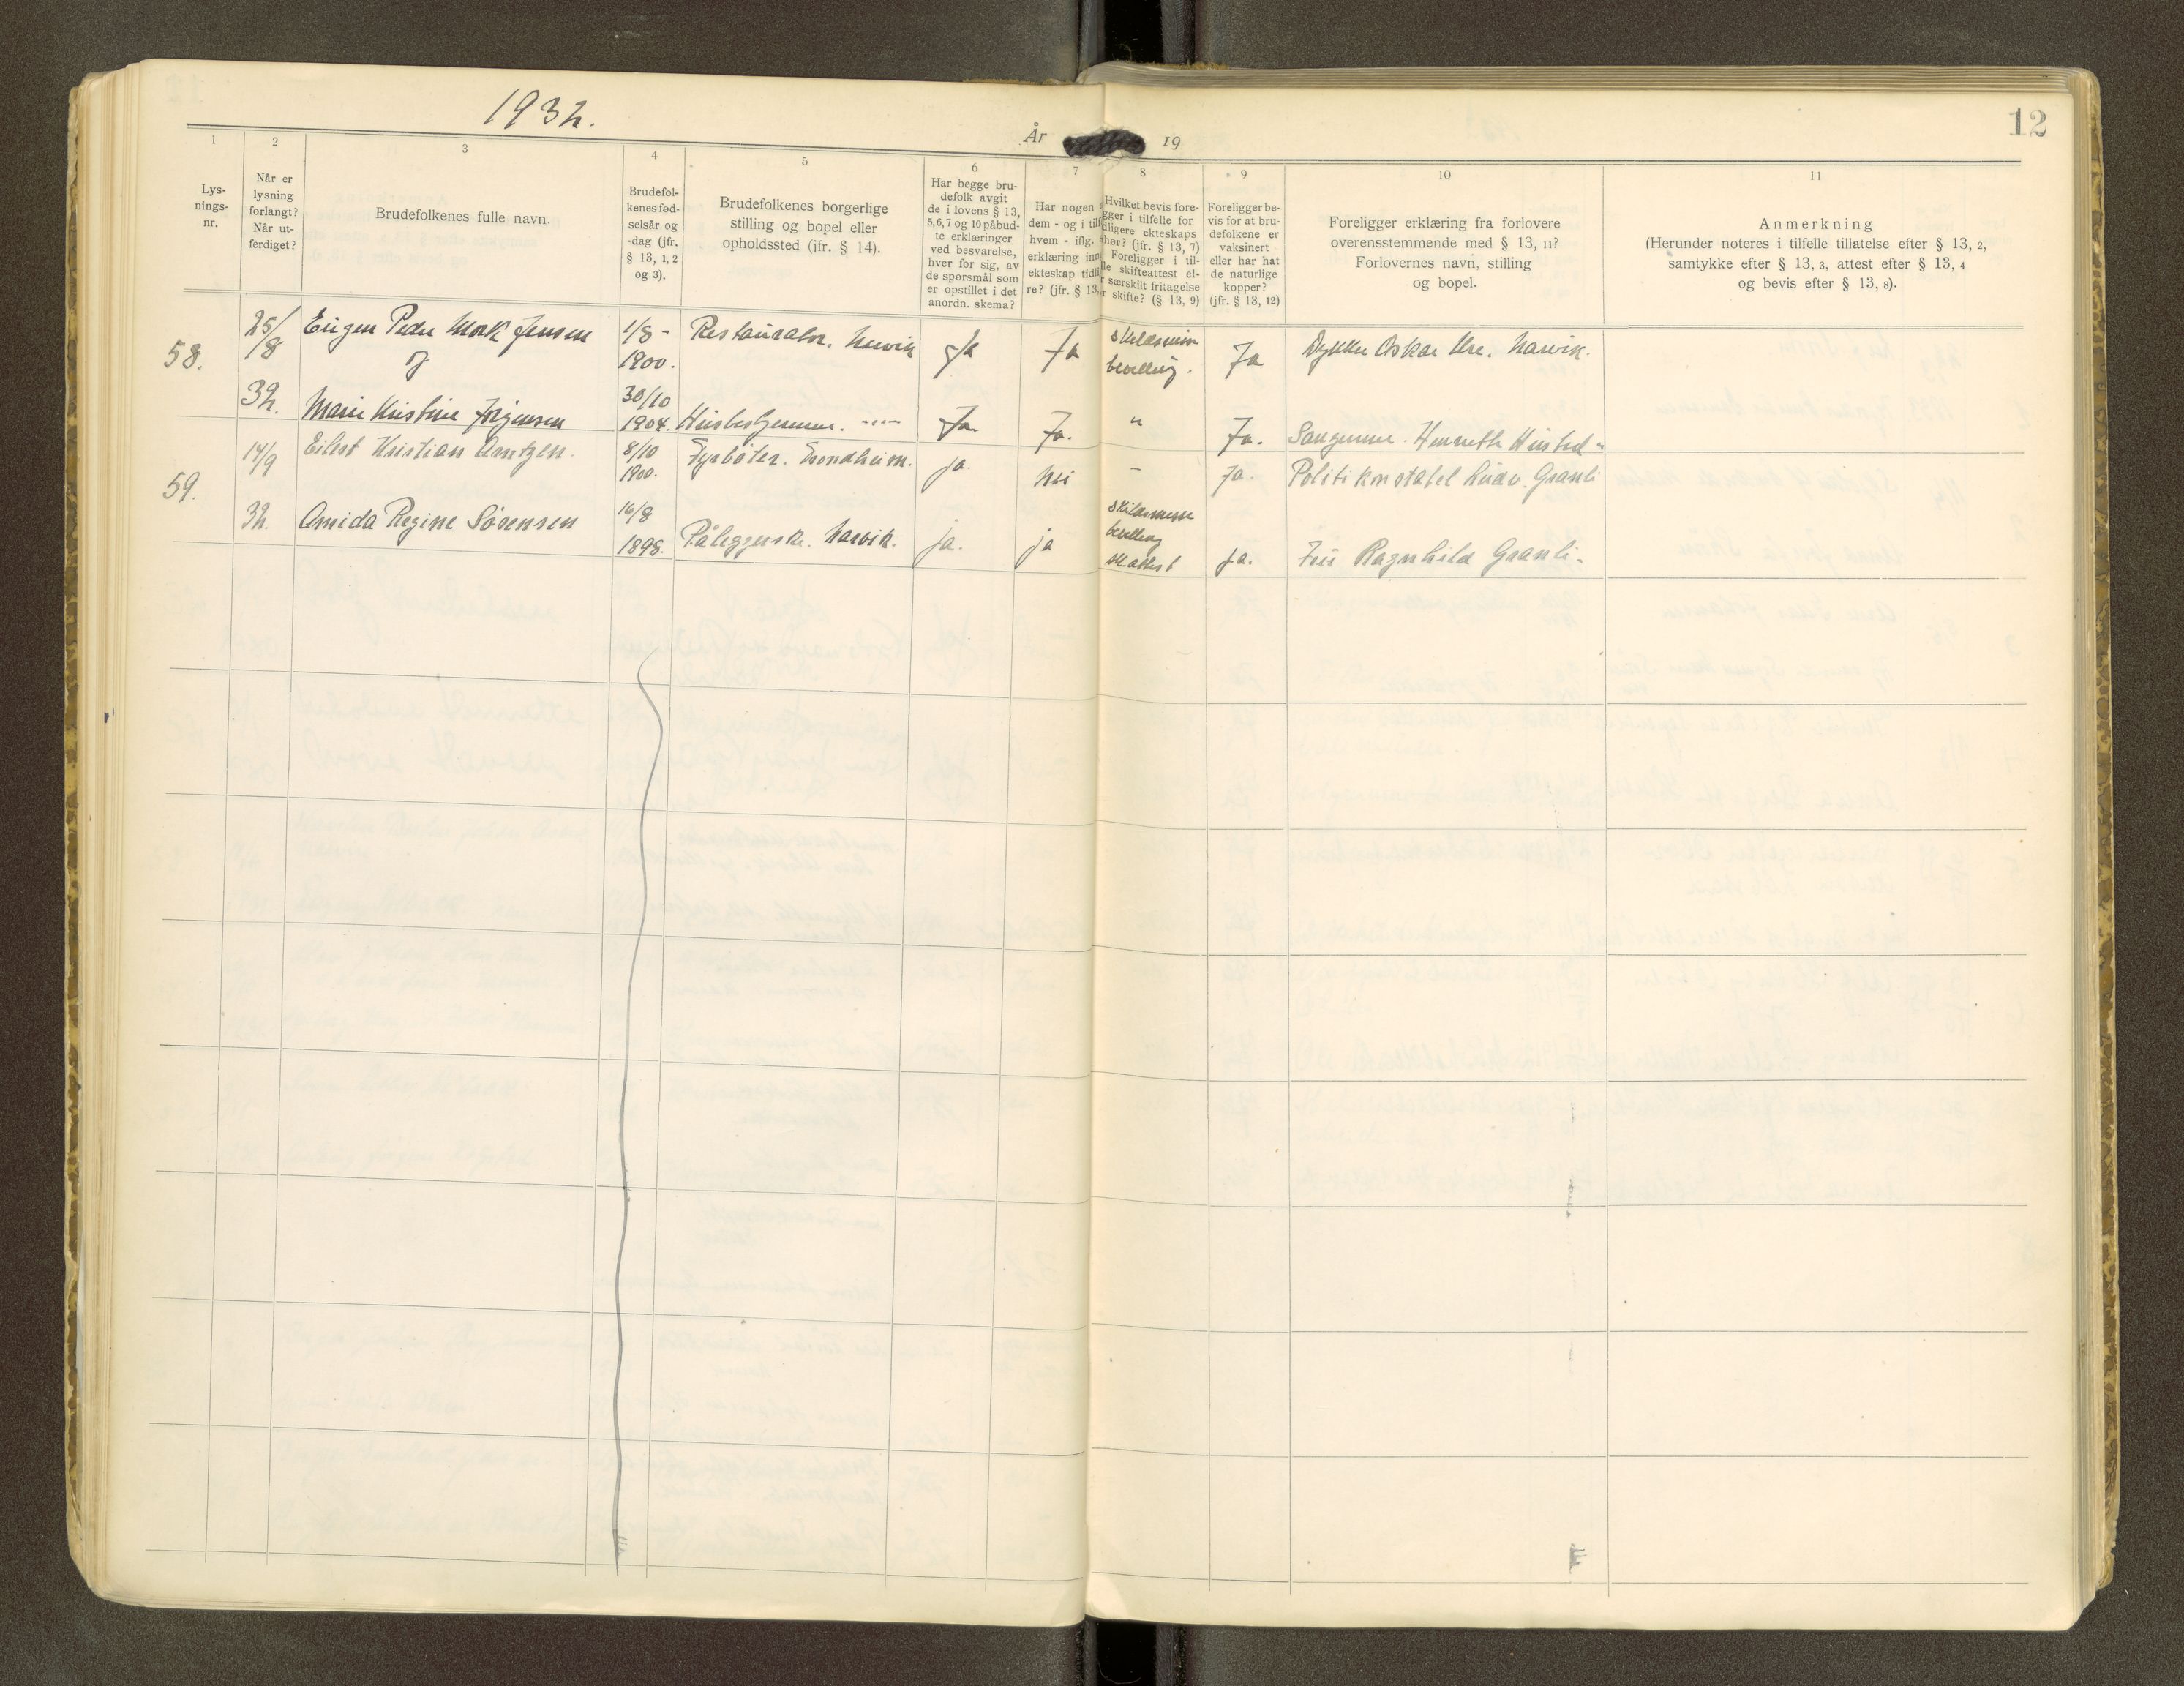 1934.
År 19
12
1
2
3
4
5
6
7
8
9
10
11
Lys-
nings-
nr.
Når er
lysning
forlangt?
Når ut-
ferdiget?
Brudefolkenes fulle navn.
Brudefol-
kenes fød-
selsår og
-dag (jfr.
§ 13, 1, 2
og 3).
Brudefolkenes borgerlige
stilling og bopel eller
opholdssted (jfr. § 14).
Har begge bru-
defolk avgit
de i lovens § 13,
5,6,7 og 10 påbud-
te erklæringer
ved besvarelse,
hver for sig, av
de spørsmål som
er opstillet i det
anordn. skema?
Har nogen
dem - og i tilf
hvem - iflg.
erklæring inn
ekteskap tidli
re? (jfr. § 13,
Hvilket bevis fore-
gger i tilfelle for
dligere ekteskaps
hør? (jfr. § 13, 7)
Foreligger i til-
le skifteattest el-
r særskilt fritagelse
r skifte? (§ 13, 9)
Foreligger be-
vis for at bru-
defolkene er
vaksinert
eller har hat
de naturlige
kopper?
(jfr. § 13, 12)
Foreligger erklæring fra forlovere
overensstemmende med § 13, 11?
Forlovernes navn, stilling
og bopel.
Anmerkning
(Herunder noteres i tilfelle tillatelse efter § 13, 2,
samtykke efter § 13, 3, attest efter § 13, 4
og bevis efter § 13, 8).
58.
25/8
34.
Eugen Peder Mork Jensen
og
1/8 -
1900.
Restauratør. Narvik
Ja
Ja
bevilling.
Ja
Dykker Oskar Narvik.
Marie Kristine Jørgensen
30/10
1904.
Husbestyrerinne. -"-
Ja
Ja.
"
Ja.
Sangerinne Henriette Hustad "
59.
14/9
34.
Eilert Kristian Arntzen.
8/10
1900.
Fyrbøter. Trondheim.
ja.
nei
-
Ja.
Politikonstabel Ludv. Granli
Amida Regine Sørensen
16/8
1898.
Påleggerske. Narvik.
ja.
ja
skilsmisse
bevilling
sk. attest
ja.
Fru Ragnhild Granli -